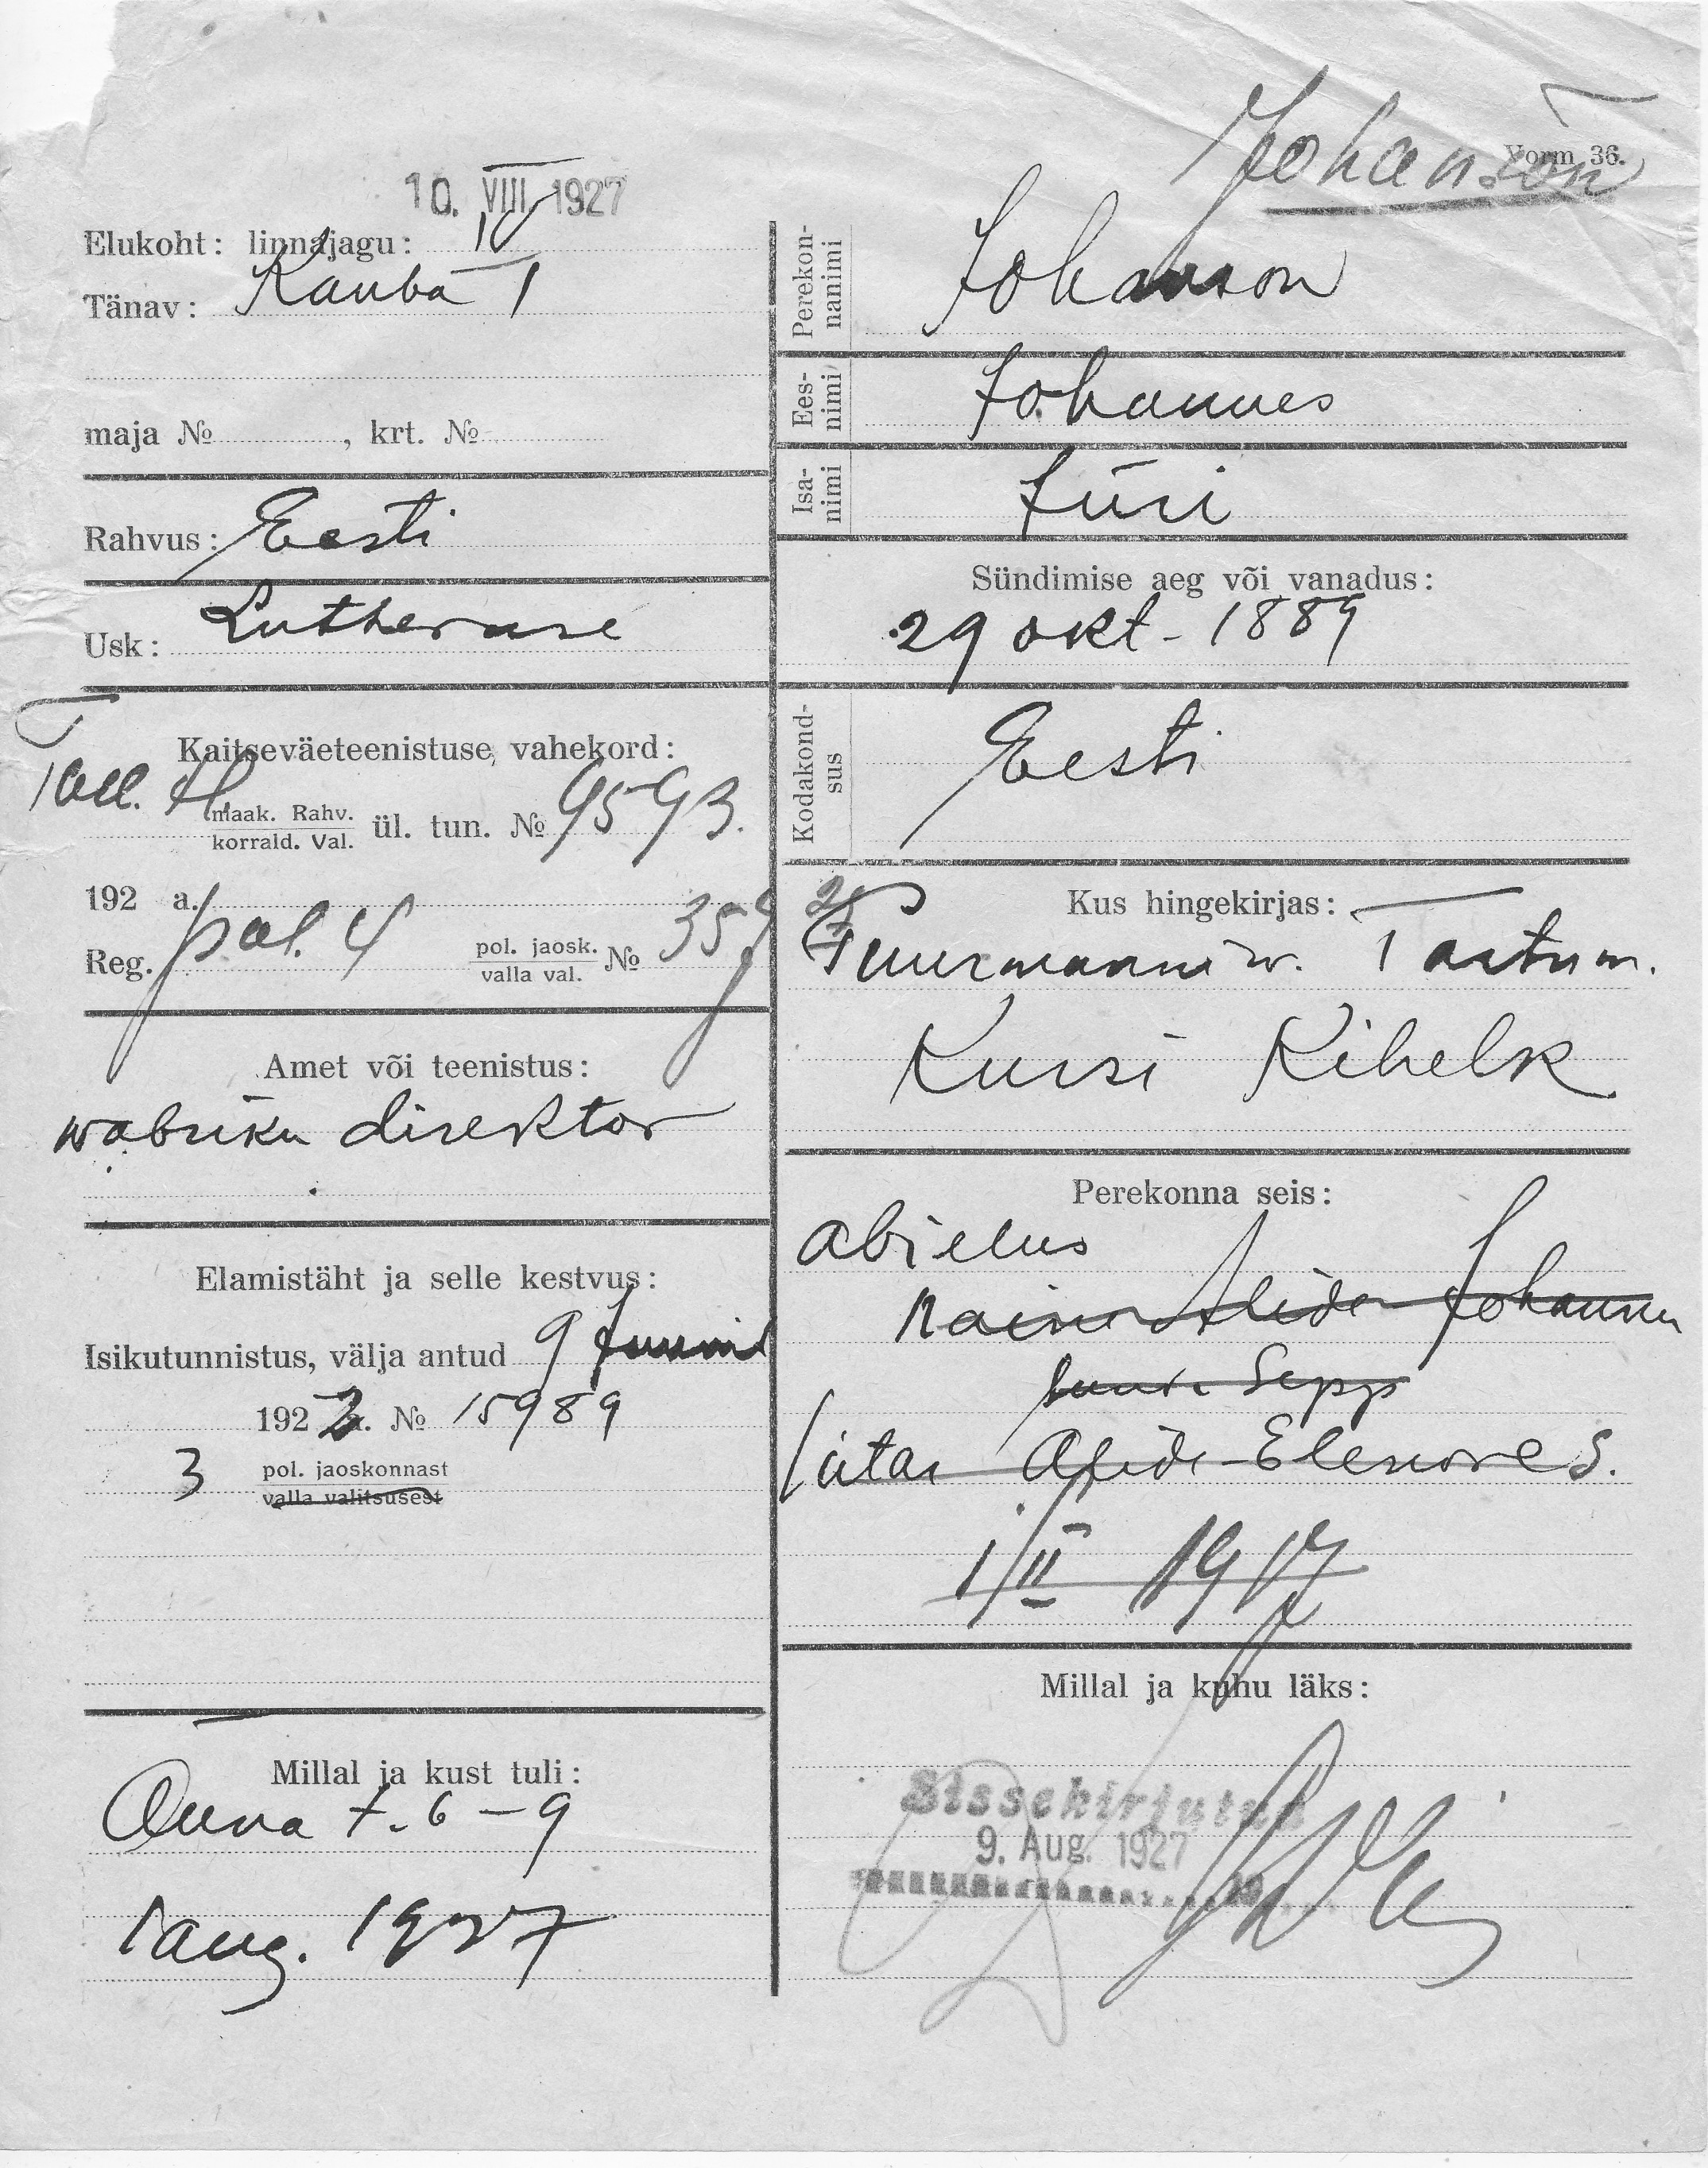 Johanson
Vorm 36.
10. VIII 1927
Elukoht: linnajagu: IV
Tänav: Kauba 1
maja № , krt. №
Rahvus: Eesti
Usk: Lutheruse
Kaitseväeteenistuse vahekord:
Tall. H.
maak. Rahv.
korrald. Val. ül. tun. № 9593.
192 a.
Reg. pol. 4 pol. jaosk.
valla val. № 359
Amet või teenistus:
wabriku direktor
Elamistäht ja selle kestvus:
Isikutunnistus, välja antud 9 Juunil
1922 a. № 15989
3 pol. jaoskonnast
valla valitsusest
Millal ja kust tuli:
t. 6-9
1 aug. 1927
Perekon-
nanimi Johanson
Ees-
nimi Johannes
Isa-
nimi Jüri
Sündimise aeg või vanadus:
29 okt - 1889
Kodakond-
sus Eesti
Kus hingekirjas:
Puurmanni w. Tartu m.
Kursi Kihelk
Perekonna seis:
abielus
naine Alide
Sepp
tütar
1/II 1917
Millal ja kuhu läks:
Sissekirjutud
9. Aug. 1927
19